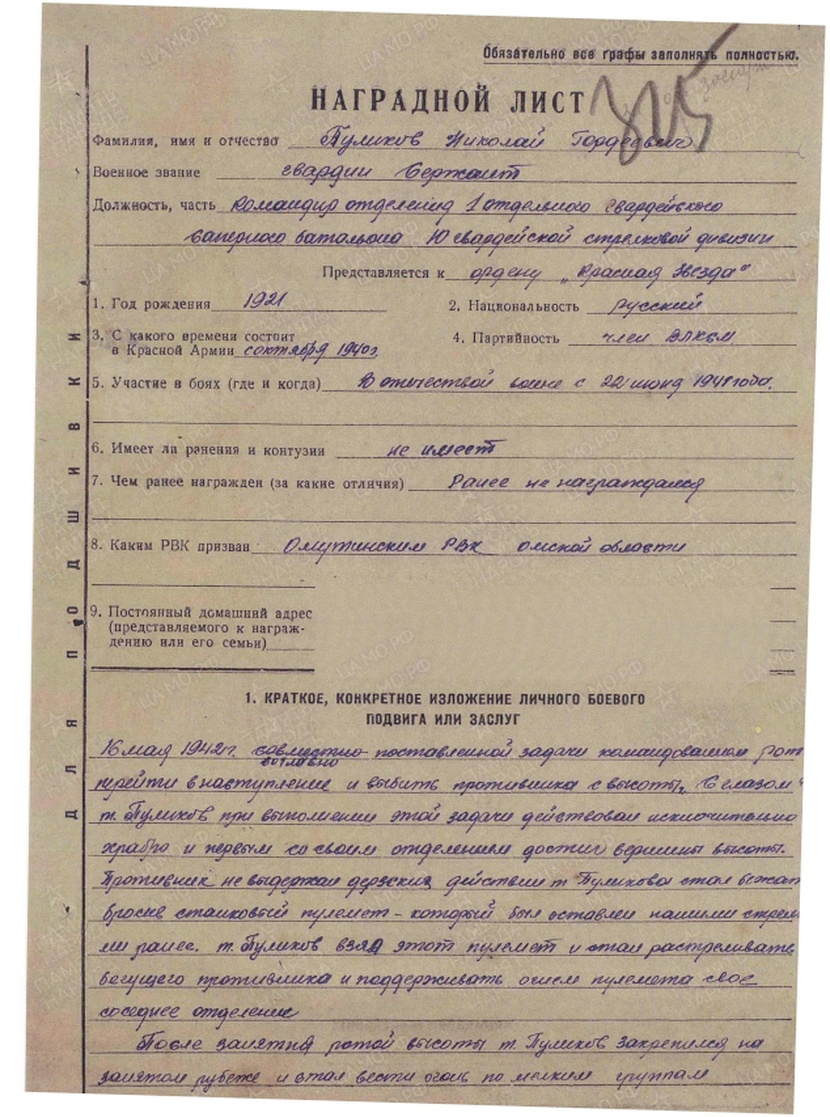 Обязательно все графы заполнять полностью.
НАГРАДНОЙ ЛИСТ
Фамилия, имя и отчество Пуликов Николай Гордеевич
Военное звание гвардии Сержант
Должность, часть Командир отделения 1 отдельного Гвардейского
Саперного батальона 10 гвардейской стрелковой дивизии
Представляется к ордену „Красная Звезда"
1. Год рождения 1921 2. Национальность русский
3. С какого времени состоит 4. Партийность член ВЛКСМ
в Красной Армии с октября 1940г.
5. Участие в боях (где и когда) В отечествой войне с 22 июня 1941 года.
6. Имеет ли ранения и контузии не имеет
7. Чем ранее награжден (за какие отличия) Ранее не награждался
8. Каким РВК призван Омутинским РВК омской области
9. Постоянный домашний адрес
(представляемого к награж-
дению или его семьи)
ДЛЯ ПОДШИВКИ
1. КРАТКОЕ, КОНКРЕТНОЕ ИЗЛОЖЕНИЕ ЛИЧНОГО БОЕВОГО
ПОДВИГА ИЛИ ЗАСЛУГ
16 мая 1942г. совместно поставленной задачи командованием рот
согласно
перейти в наступление и выбить противника с высоты „С глазом"
т. Пуликов при выполнении этой задачи действовал исключительно
храбро и первым со своим отделением достиг вершины высоты.
Противник не выдержал дерзских действии т Пуликова стал бежат
бросив станковый пулемет - который был оставлен нашими стрел
ми ранее. т. Пуликов взял этот пулемет и стал растреливать
бегущего противника и поддерживать огнем пулемета свое
соседнее отделение
После занятия ротой высоты т. Пуликов закрепился на
занятом рубеже и стал вести огонь по мелким группам